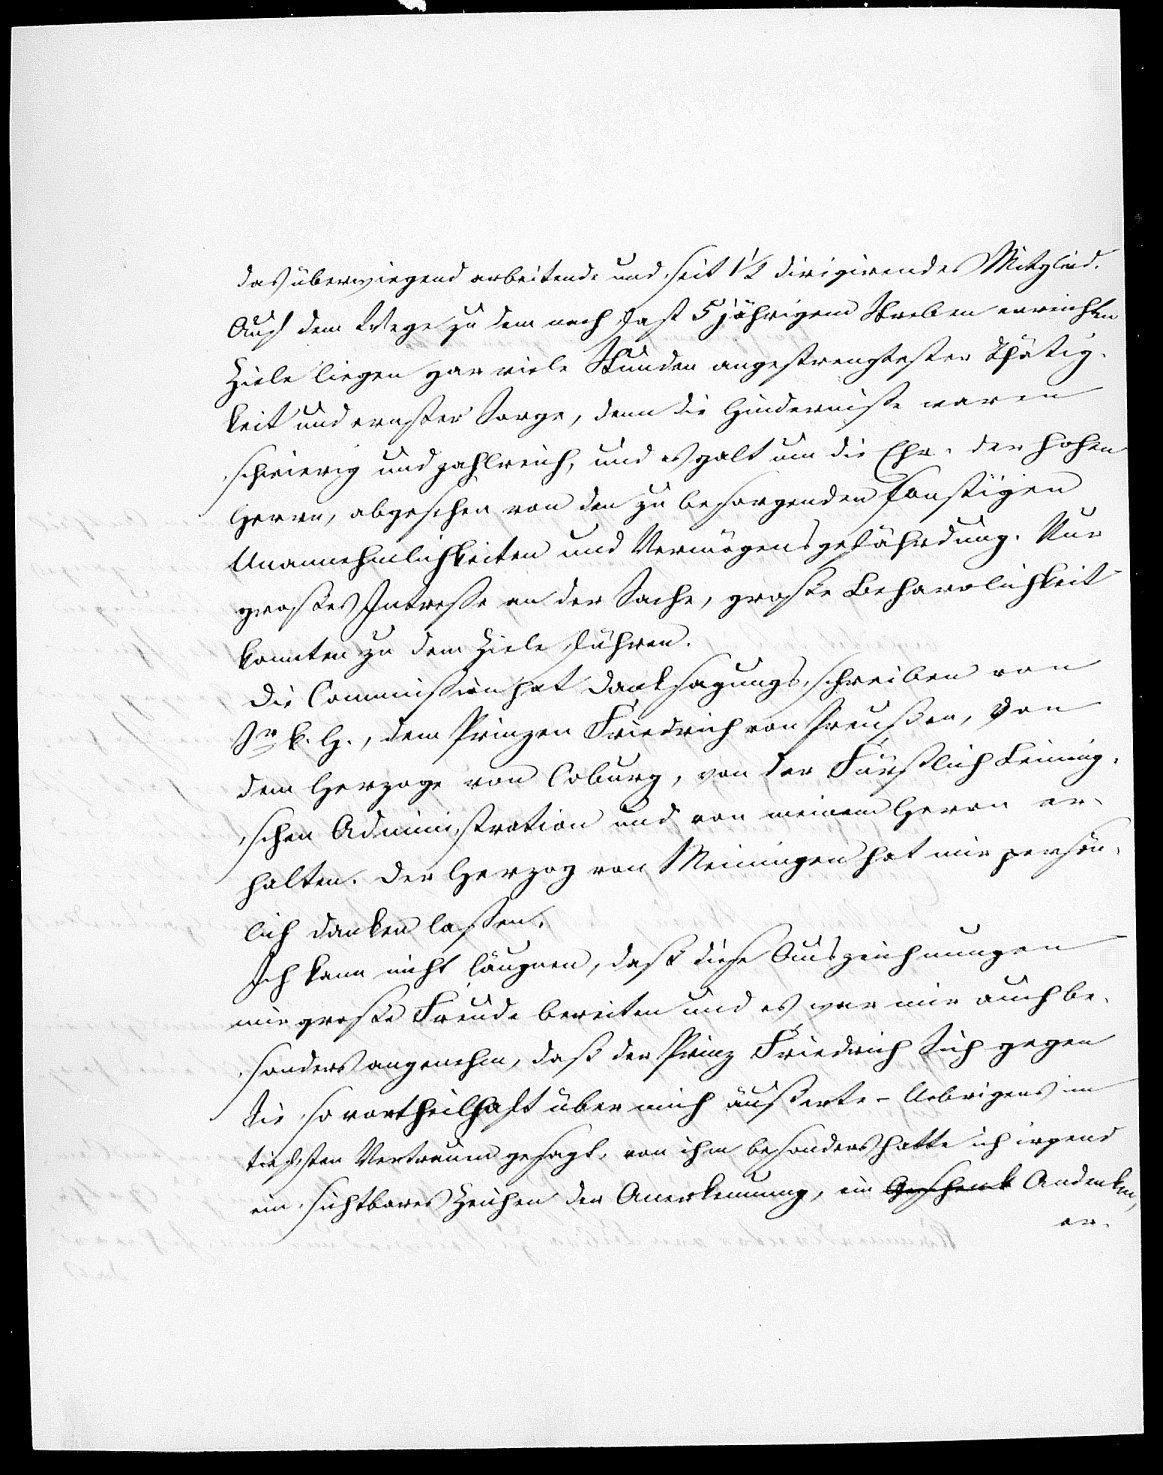 das überwiegend arbeitende und seit 1½ dirigirendes Mitglied.
Auf dem Wege zu dem nach fast 5jährigem Streben erreichten
Ziele liegen gar viele Stunden angestrengtester Thätig-
keit und ernster Sorge, denn die Hinderniße waren
schwierig und zahlreich, und es galt um die Ehre der hohen
Herrn, abgesehen von den zu besorgenden sonstigen
Unannehmlichkeiten und Vermögensgefährdung. Nur
großes Intreße an der Sache, große Beharrlichkeit
konnten zu dem Ziele führen.
Die Commißion hat Danksagungsschreiben von
Sr k. H., dem Prinzen Friedrich von Preußen, von
dem Herzoge von Coburg, von der Fürstlich Leining-
schen Administration und von meinem Herrn er-
halten. Der Herzog von Meiningen hat mir persön-
lich danken laßen.
Ich kann nicht läugnen, daß diese Auszeichnungen
mir große Freude bereiten und es war mir auch be-
sonders angenehm, daß der Prinz Friedrich sich gegen
Sie so vortheilhaft über mich äußerte - Uebrigens im
tiefsten Vertrauen gesagt, von ihm besonders hatte ich irgend
ein sichtbares Zeichen der Anerkennung, ein Geschenk Andenken,
er-